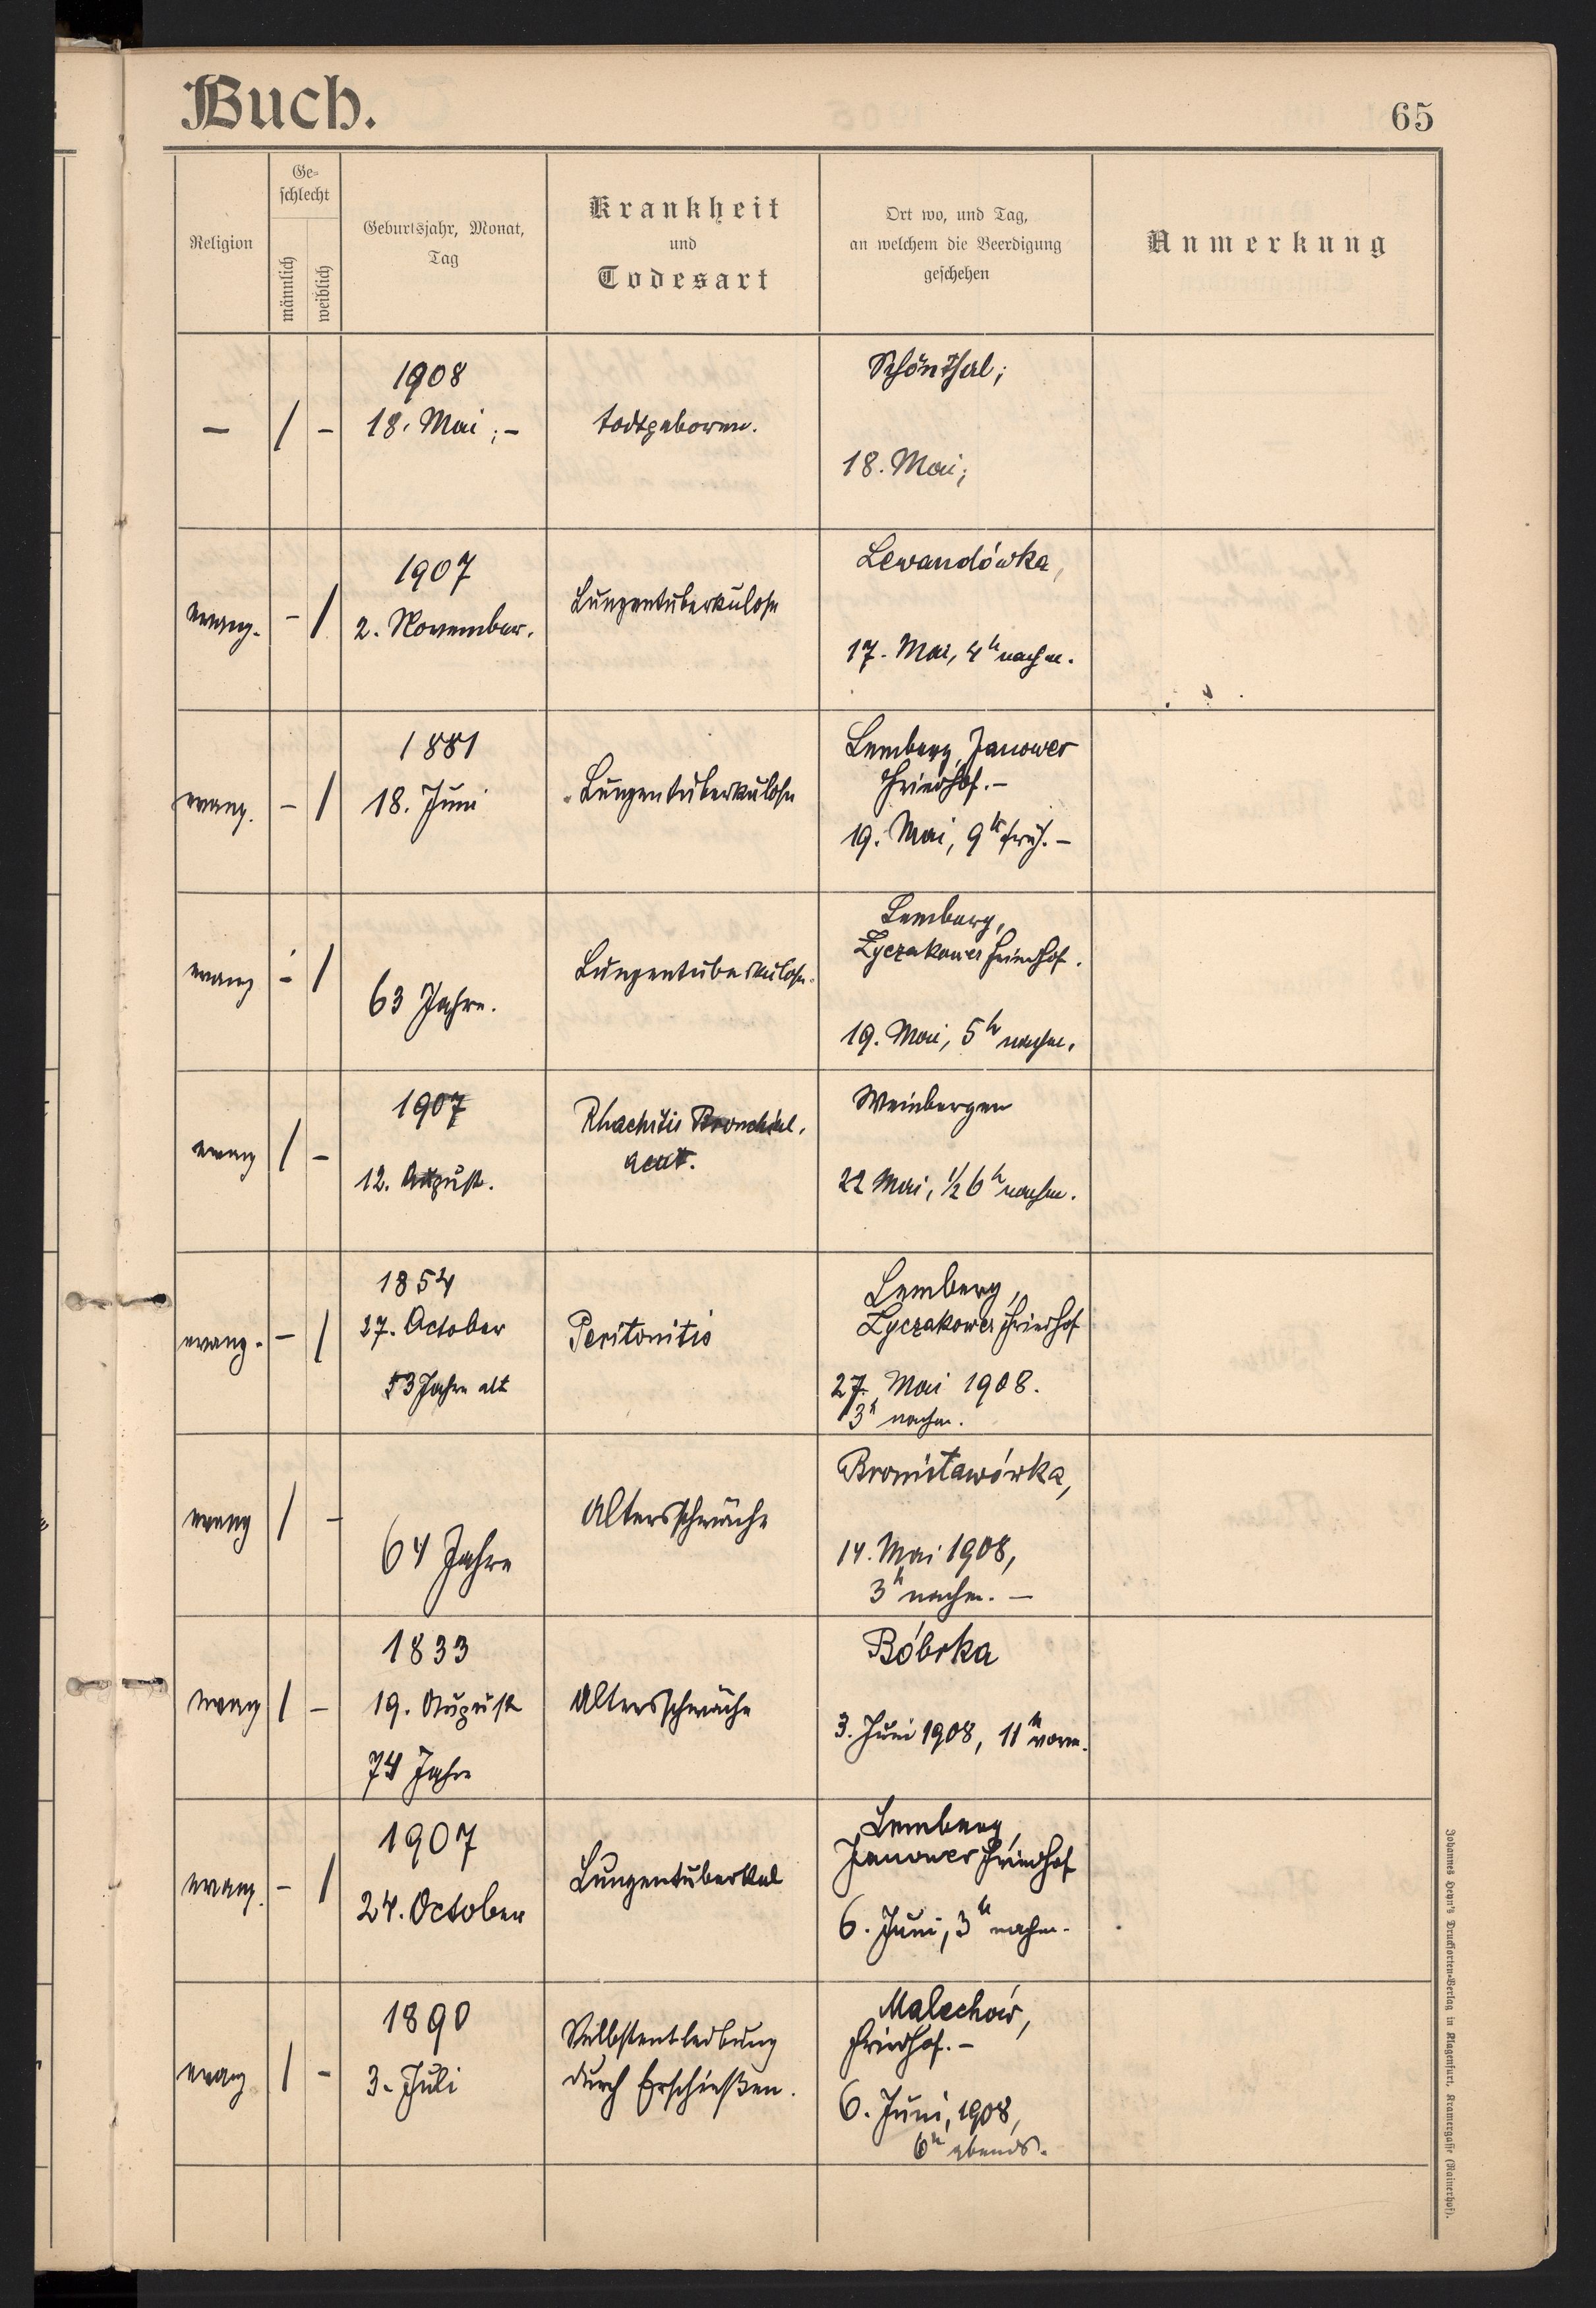 Buch.
65
Religion
Ge-
schlecht
männlich
weiblich
Geburtsjahr, Monat,
Tag
Krankheit
und
Todesart
Ort wo, und Tag,
an welchem die Beerdigung
geschehen
Anmerkung
— / – 1908
18. Mai ; –
todtgeboren.
Schönthal;
18. Mai;
evang. – / 1907
2. November.
Lungentuberkulose
Lewandówka,
17. Mai, 4h nachm.
evang. – / 1881
18. Juni
Lungentuberkulose
Lemberg, Janower
Friedhof. –
19. Mai, 9h früh. –
evang – /
63 Jahre.
Lungentuberkulose.
Lemberg,
Lyczakower Friedhof.
19. Mai, 5h nachm.
evang / – 1907
12. August.
Rhachitis Bronchial.
acut.
Weinbergen
22 Mai, 1/2 6h nachm.
evang. – / 1854
27. October
53 Jahre alt
Peritonitis
Lemberg,
Lyczakower Friedhof
27. Mai 1908.
3h nachm.
evang / –
64 Jahre
Altersschwäche
Bronisławówka,
14. Mai 1908,
3h nachm. –
evang / – 1833
19. August
74 Jahre
Altersschwäche
Bóbrka
3. Juni 1908, 11h vorm.
evang. – / 1907
24. October
Lungentuberkul
Lemberg,
Janower Friedhof
6. Juni, 3h nachm.
evang / – 1890
3. Juli
Selbstentleibung
durch Erschießen.
Malechów,
Friedhof. –
6. Juni, 1908,
6h abends.
Johannes Heyn's Drucksorten-Verlag in Klagenfurt, Kramergasse (Rainerhof).